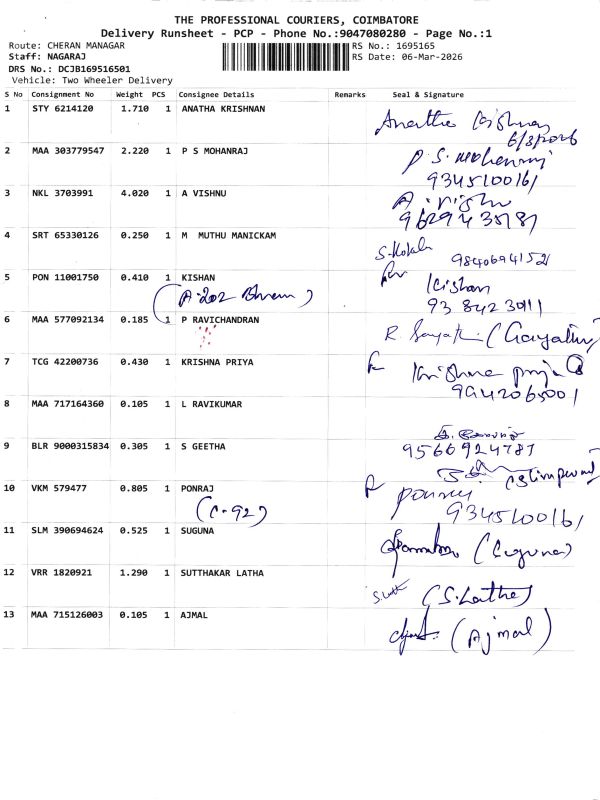 THE PROFESSIONAL COURIERS, COIMBATORE
Delivery Runsheet - PCP - Phone No.:9047080280 - Page No.:1
Route: CHERAN MANAGAR RS No.: 1695165
Staff: NAGARAJ RS Date: 06-Mar-2026
DRS No.: DCJB169516501
Vehicle: Two Wheeler Delivery
S No Consignment No Weight PCS Consignee Details Remarks Seal & Signature
1 STY 6214120 1.710 1 ANATHA KRISHNAN
Anatha Krishnan
6/3/2026
2 MAA 303779547 2.220 1 P S MOHANRAJ P.S. Mohanraj
9345100161
3 NKL 3703991 4.020 1 A VISHNU A. Vishnu
9629435787
4 SRT 65330126 0.250 1 M MUTHU MANICKAM
9840694152
5 PON 11001750 0.410 1 KISHAN for Kishan
(A-202 ) 938423011
6 MAA 577092134 0.185 1 P RAVICHANDRAN
R (Gayathri)
7 TCG 42200736 0.430 1 KRISHNA PRIYA Krishna priya
9942065001
8 MAA 717164360 0.105 1 L RAVIKUMAR
9566924787
9 BLR 9000315834 0.305 1 S GEETHA
10 VKM 579477 0.805 1 PONRAJ Ponraj
(C-92) 9345100161
11 SLM 390694624 0.525 1 SUGUNA (Suguna)
12 VRR 1820921 1.290 1 SUTTHAKAR LATHA (S. Latha)
13 MAA 715126003 0.105 1 AJMAL (Ajmal)